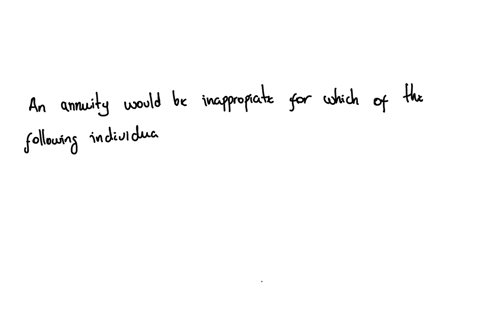 An annuity would be inappropiate for which of the
following individua